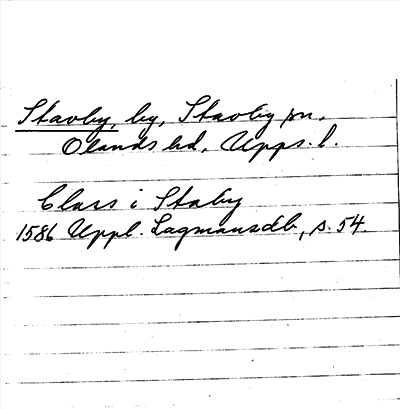 Stavby, by, Stavby sn.
Olands hd, Upps. l.
Clars i Staby
1586 Uppl. Lagmansdb, s. 54.